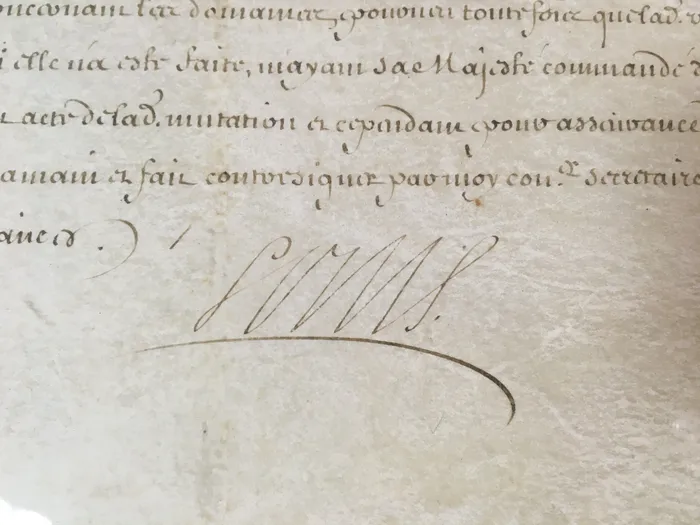 concernant les domaines, pouvoir toutefois que lad.
elle n'a esté faite, n'ayant sa Majesté commandé
acte de lad. mutation et cependant pour asseurance
main et fait contresigner par moy con.er secretaire
ances.
Louis.